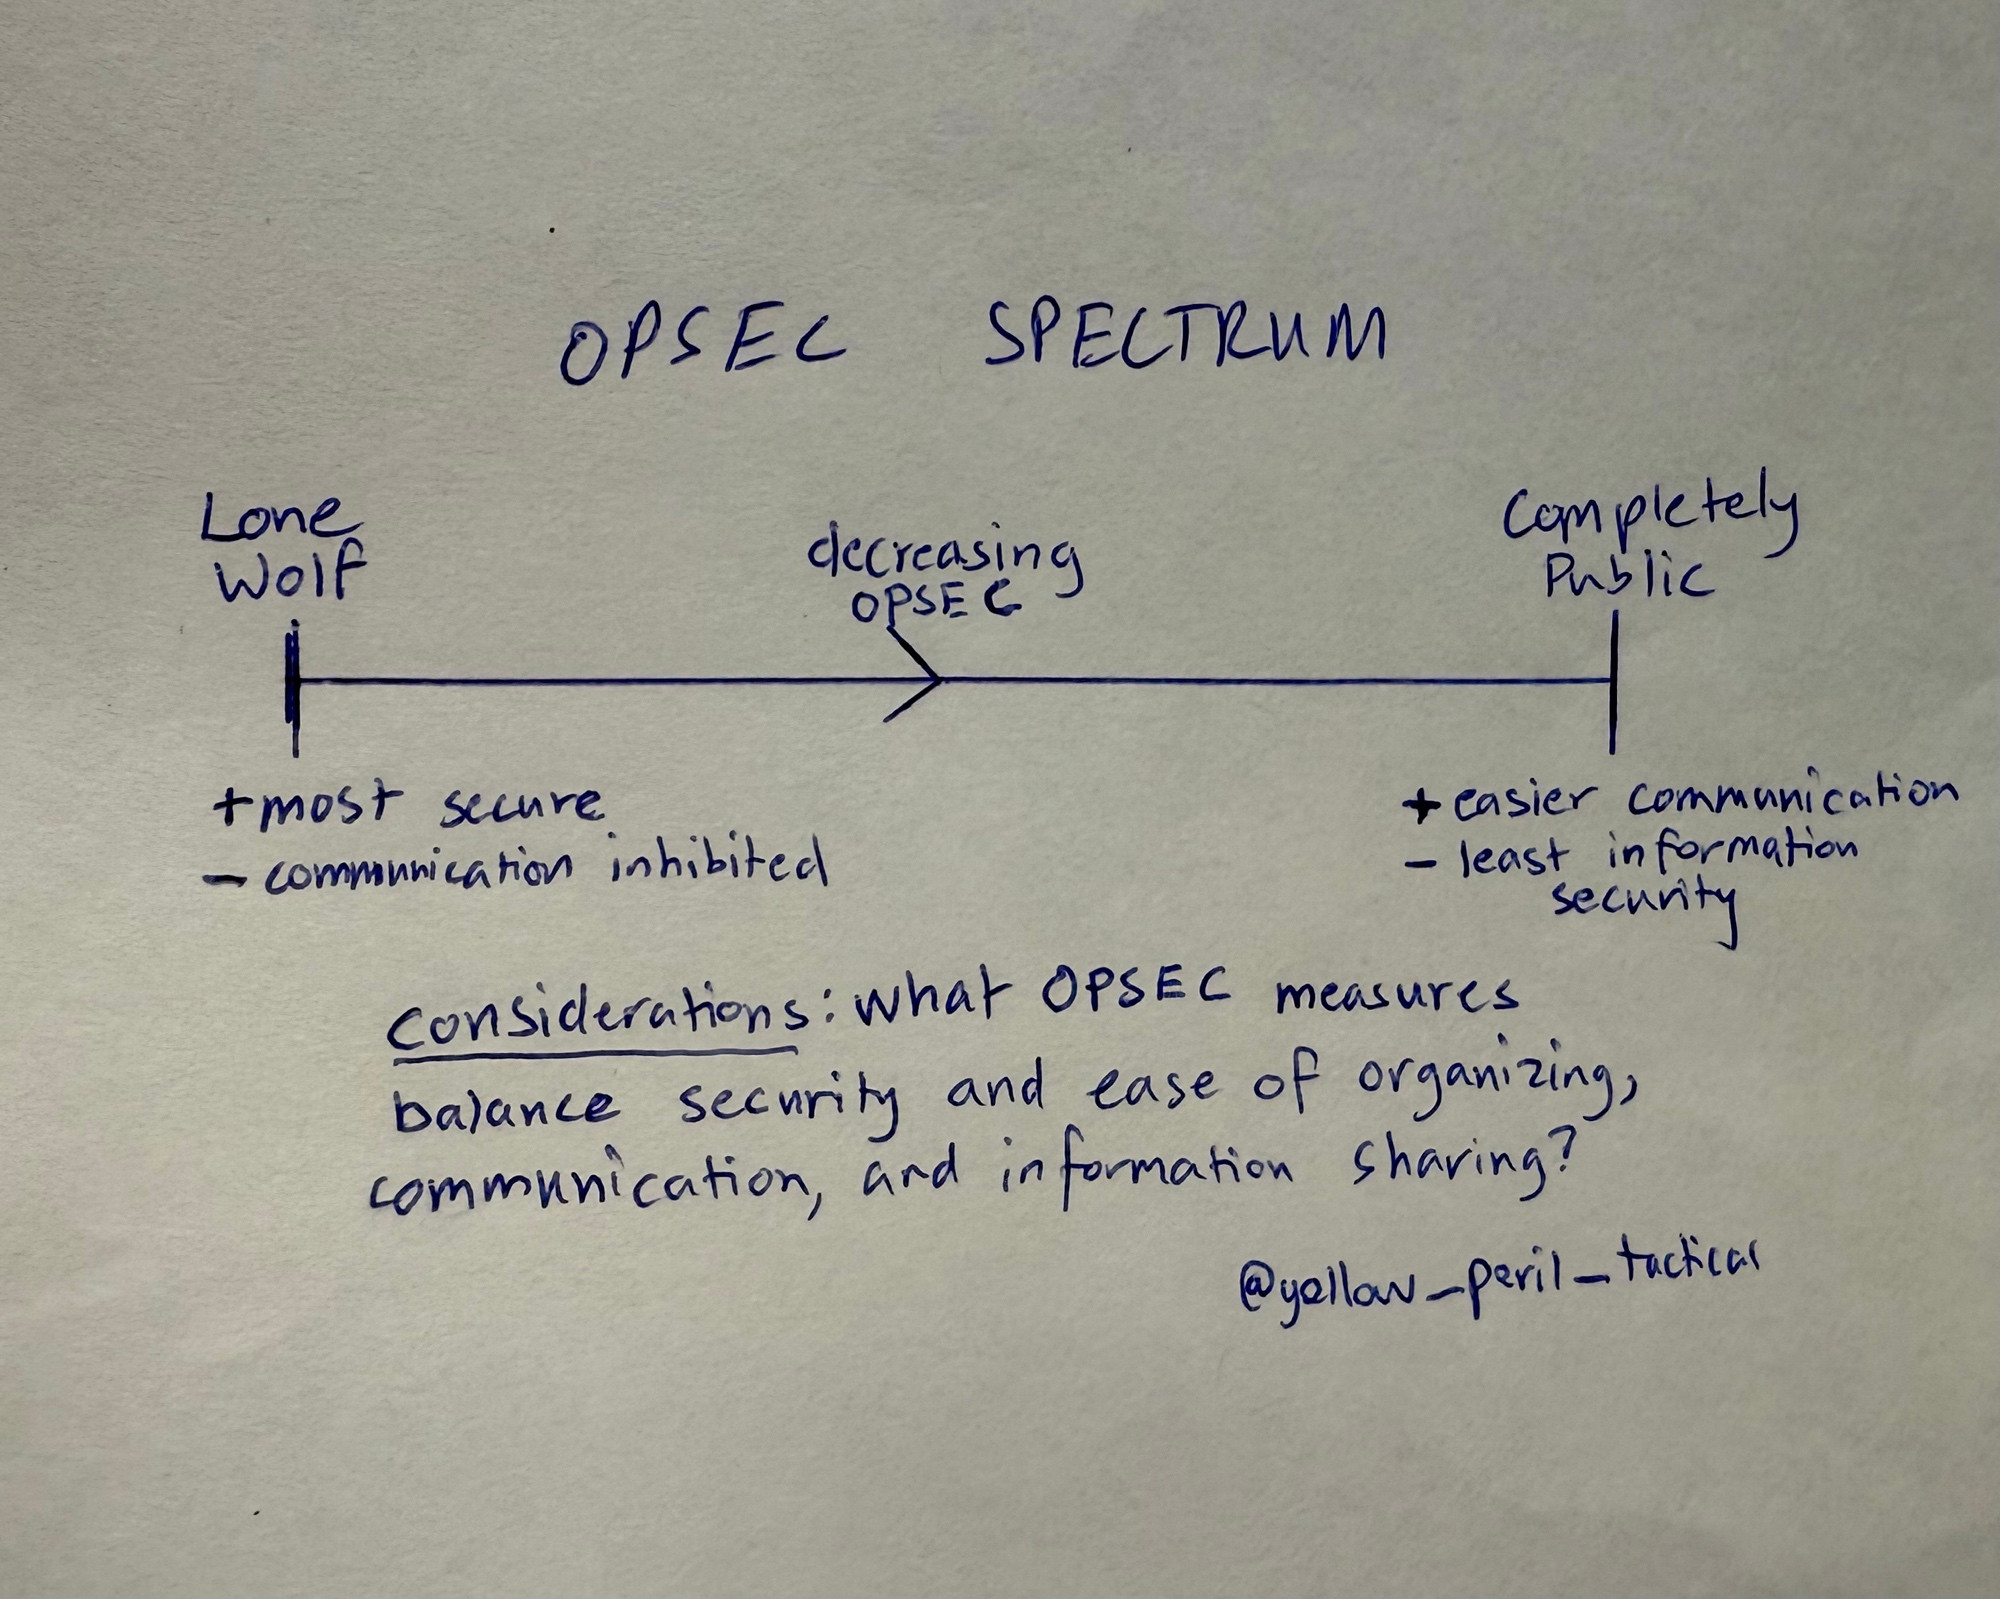 OPSEC SPECTRUM
Lone
Wolf
decreasing
OPSEC
Completely
Public
+most secure
- communication inhibited
+ easier communication
- least information
security
Considerations: What OPSEC measures
balance security and ease of organizing,
communication, and information sharing?
@yellow_peril_tactical